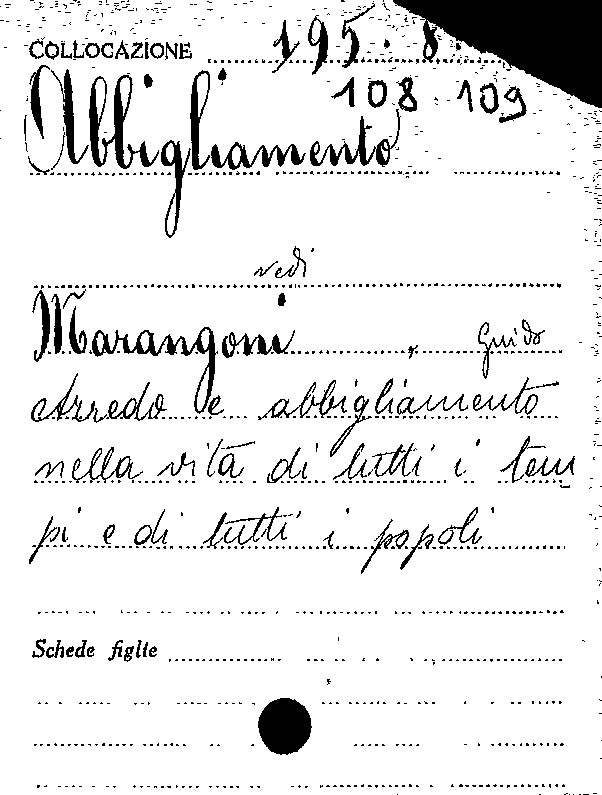 COLLOCAZIONE 195. 8.
108 109
Abbigliamento
vedi
Marangoni, Guido
Arredo e abbigliamento
nella vita di tutti i tem
pi e di tutti i popoli
Schede figlie